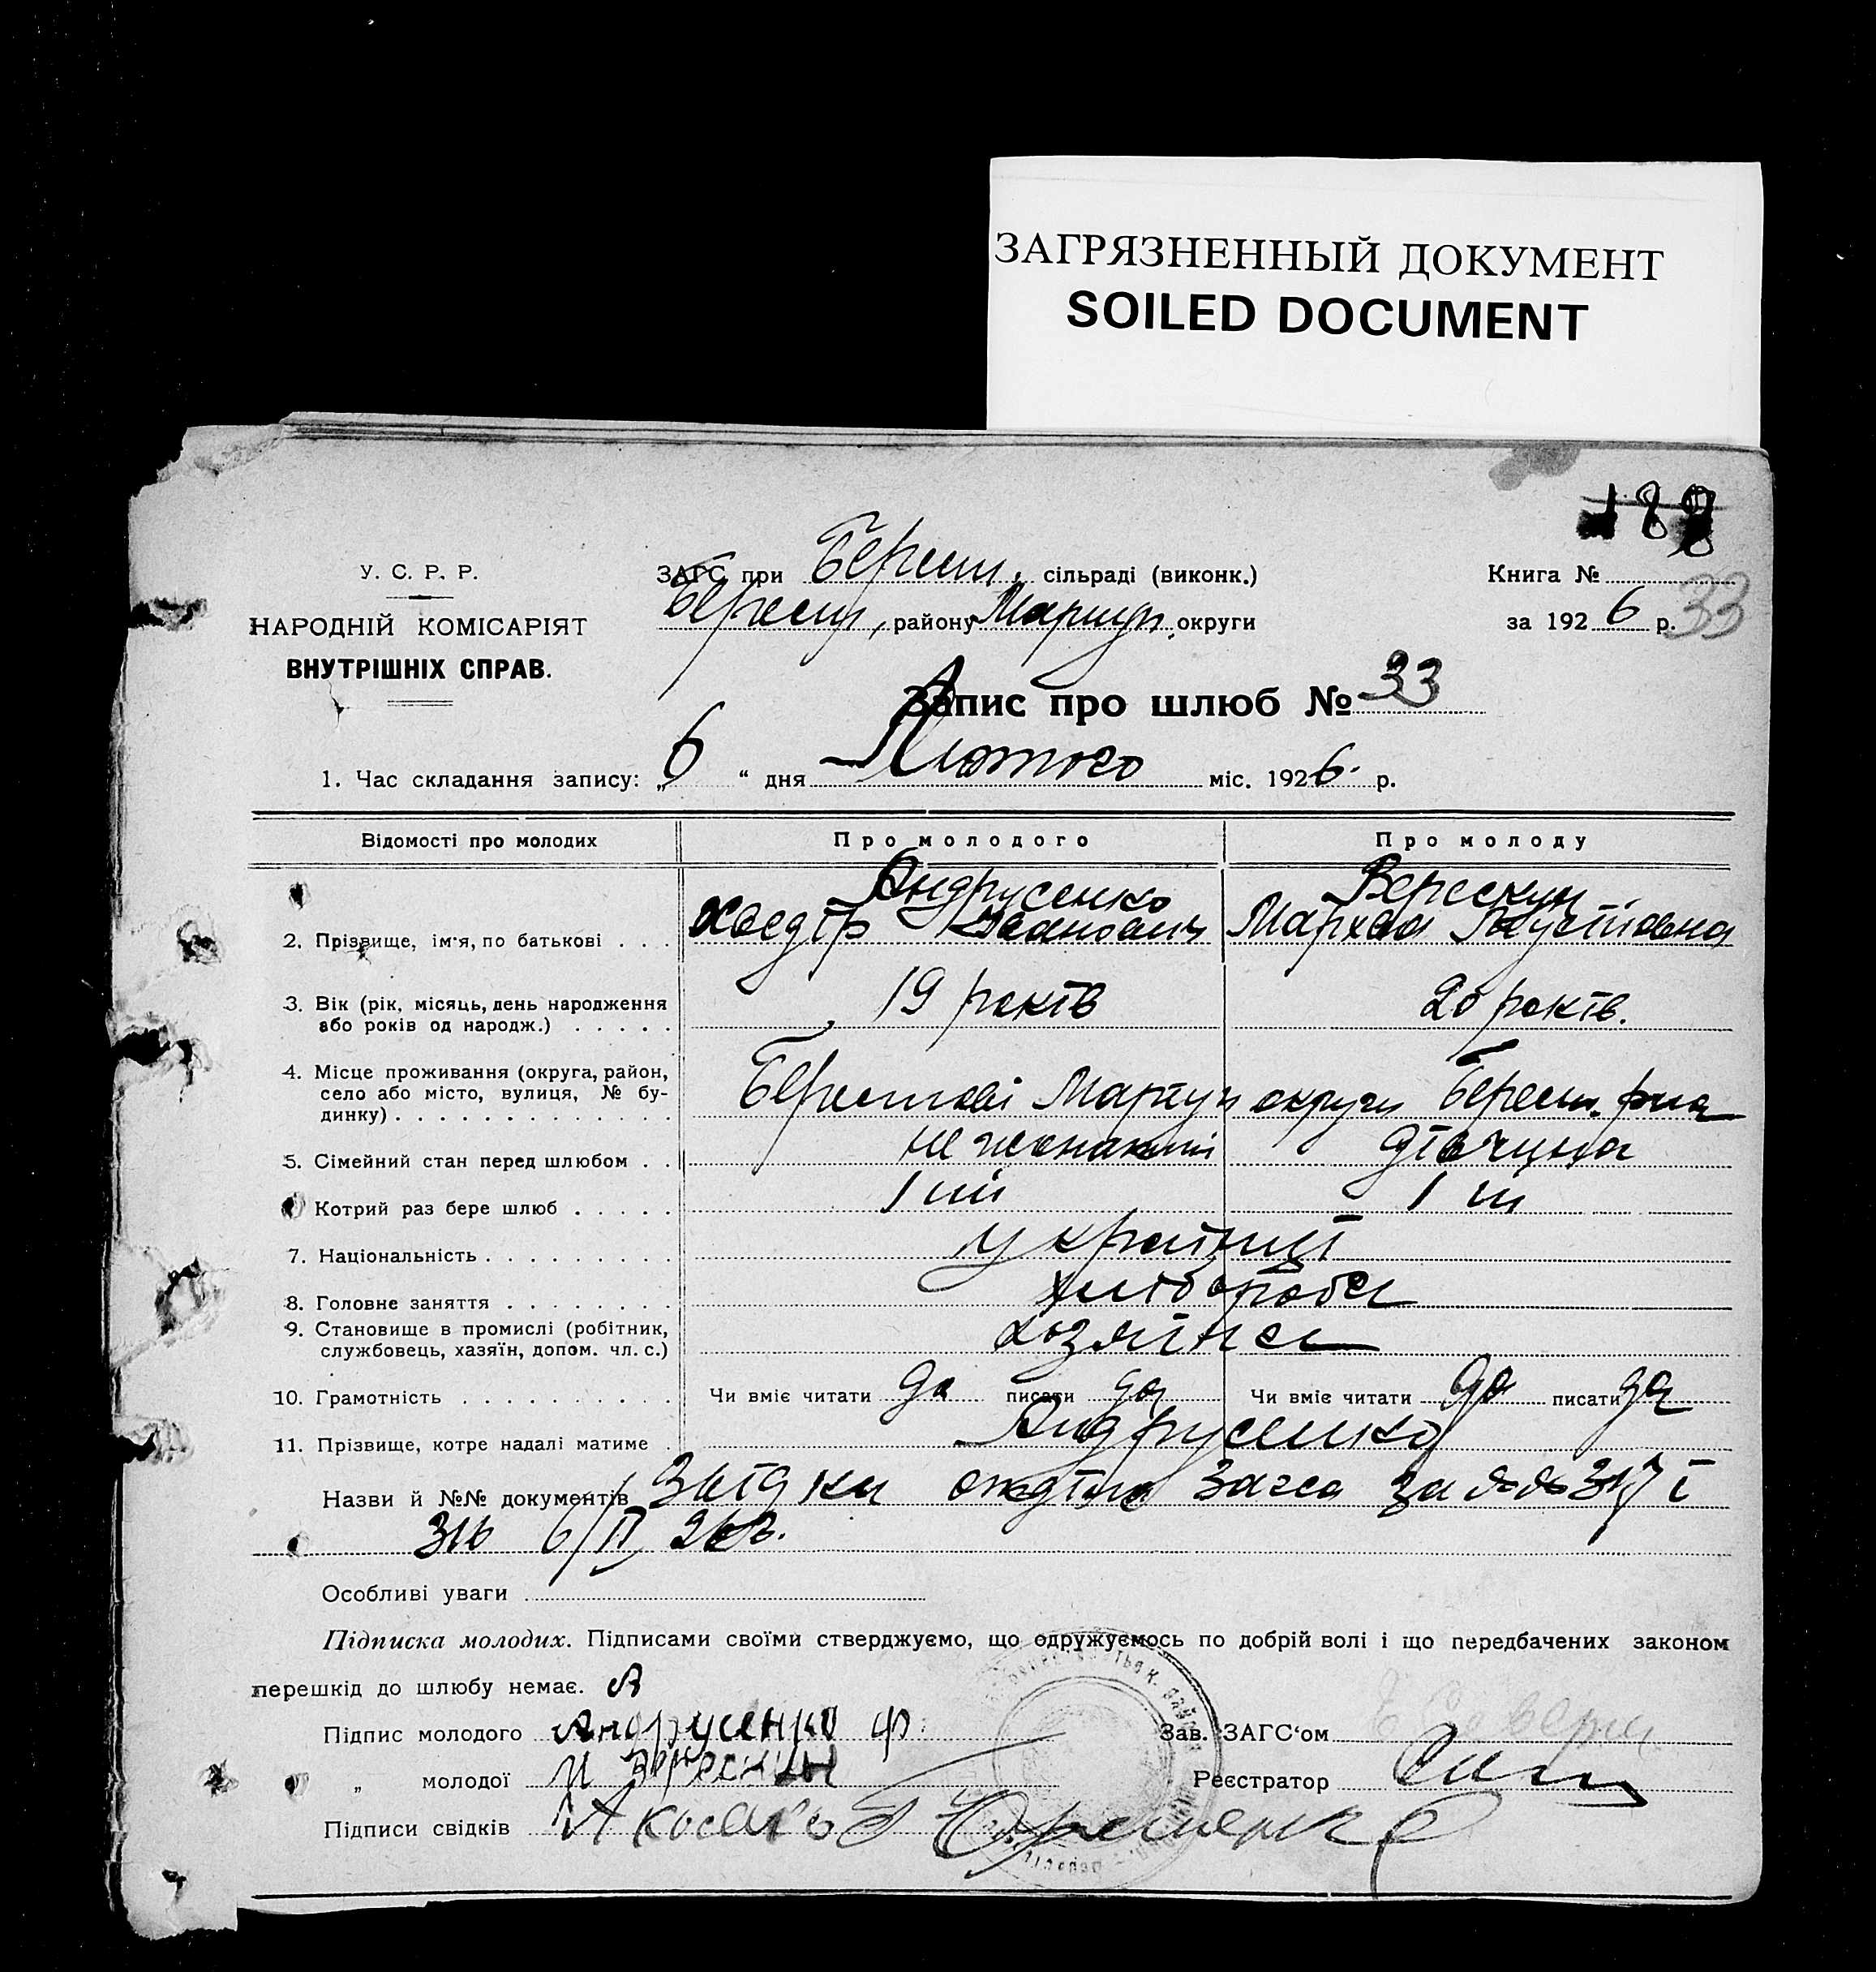 ЗАГРЯЗНЕННЫЙ ДОКУМЕНТ
SOILED DOCUMENT
У. С. Р. Р.
НАРОДНІЙ КОМІСАРІЯТ
ВНУТРІШНІХ СПРАВ.
ЗАГС при Берест. сільраді (виконк.)
Берест. району Маріуп. округи
Книга №
за 1926 р. 33
Запис про шлюб № 33
1. Час складання запису: „6“ дня Лютого міс. 1926 р.
Відомості про молодих Про молодого Про молоду
Андрусенко Верескун
2. Прізвище, ім'я, по батькові . . . Хведір Іванович Мархва
3. Вік (рік, місяць, день народження
або років од народж.) . . . . . 19 років 20 років.
4. Місце проживання (округа, район,
село або місто, вулиця, № бу-
динку) . . . . . . . . . . . . . Берестові Маріуп округи Берест. рна
5. Сімейний стан перед шлюбом . . не жонатий дівчина
Котрий раз бере шлюб . . . . . 1 ий 1 ий
7. Національність . . . . . . . . . українці
8. Головне заняття . . . . . . . . хлібороби
9. Становище в промислі (робітник,
службовець, хазяїн, допом. чл. с.) хозяїни
10. Грамотність . . . . . . . . . . Чи вміє читати да писати да Чи вміє читати да писати да
11. Прізвище, котре надалі матиме . Андрусенко
Назви й №№ документів загса за
6/II 26 р.
Особливі уваги
Підписка молодих. Підписами своїми стверджуємо, що одружуємось по добрій волі і що передбачених законом
перешкід до шлюбу немає.
Підпис молодого Андрусенко Ф.
Зав. ЗАГС‘ом
„ молодої
Реєстратор
Підписи свідків